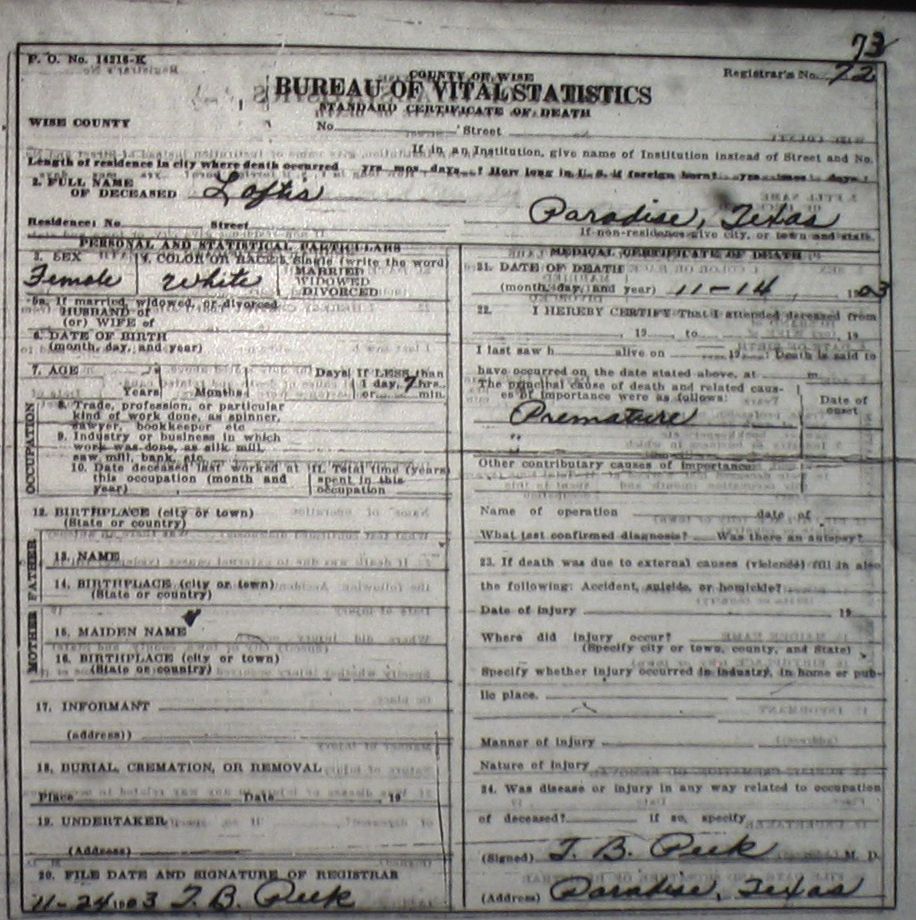 73
F. O. No. 14216-K
COUNTY OF WISE
Registrar's No. 72
BUREAU OF VITAL STATISTICS
STANDARD CERTIFICATE OF DEATH
WISE COUNTY
No. Street
If in an Institution, give name of Institution instead of Street and No.
Length of residence in city where death occurred yrs mos days? How long in U. S. if foreign born? yrs mos days
2. FULL NAME
OF DECEASED Loftis
Residence: No. Street Paradise, Texas
If non-residence give city, or town and state
PERSONAL AND STATISTICAL PARTICULARS
3. SEX 4. COLOR OR RACE 5. Single (write the word)
Female White MARRIED
WIDOWED
DIVORCED
5a. If married, widowed, or divorced
HUSBAND of
(or) WIFE of
6. DATE OF BIRTH
(month, day, and year)
7. AGE Days If LESS than
Years Months 1 day, 7 hrs.
or min.
OCCUPATION
8. Trade, profession, or particular
kind of work done, as spinner,
sawyer, bookkeeper etc
9. Industry or business in which
work was done, as silk mill,
saw mill, bank, etc.
10. Date deceased last worked at
this occupation (month and
year)
11. Total time (years)
spent in this
occupation
12. BIRTHPLACE (city or town)
(State or country)
FATHER
13. NAME
14. BIRTHPLACE (city or town)
(State or country)
MOTHER
15. MAIDEN NAME
16. BIRTHPLACE (city or town)
(State or country)
17. INFORMANT
(address))
18. BURIAL, CREMATION, OR REMOVAL
Place Date , 19
19. UNDERTAKER
(Address)
20. FILE DATE AND SIGNATURE OF REGISTRAR
11-24 1903 T. B. Peek
MEDICAL CERTIFICATE OF DEATH
21. DATE OF DEATH
(month, day, and year) 11-14, 1903
22. I HEREBY CERTIFY That I attended deceased from
, 19 to , 19
I last saw h alive on , 19 : Death is said to
have occurred on the date stated above, at m.
The principal cause of death and related caus-
es of importance were as follows:
Date of
onset
Premature
Other contributary causes of importance:
Name of operation date of
What test confirmed diagnosis? Was there an autopsy?
23. If death was due to external causes (violence) fill in also
the following: Accident, suicide, or homicide?
Date of injury 19
Where did injury occur?
(Specify city or town, county, and State)
Specify whether injury occurred in industry, in home or pub-
lic place.
Manner of injury
Nature of injury
24. Was disease or injury in any way related to occupation
of deceased? if so, specify
(Signed) T. B. Peek M. D.
(Address) Paradise, Texas